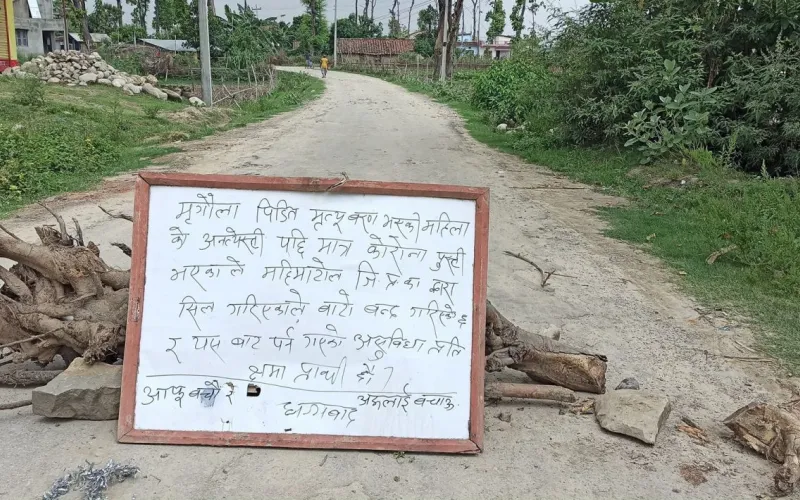 मृगौला पिडित मृत्यू वरण भएकी महिला
को अन्त्येस्टी पछि मात्र कोरोना पुस्टी
भएकाले महिमाटोल जि प्र का द्वारा
सिल गरिएकाले बाटो बन्द गरिएको छ
र यस बाट पर्न गएको असुविधा प्रति
क्षमा प्रार्थी छौ।
आफू बचौ र अरूलाई बचाऊ
धन्यवाद